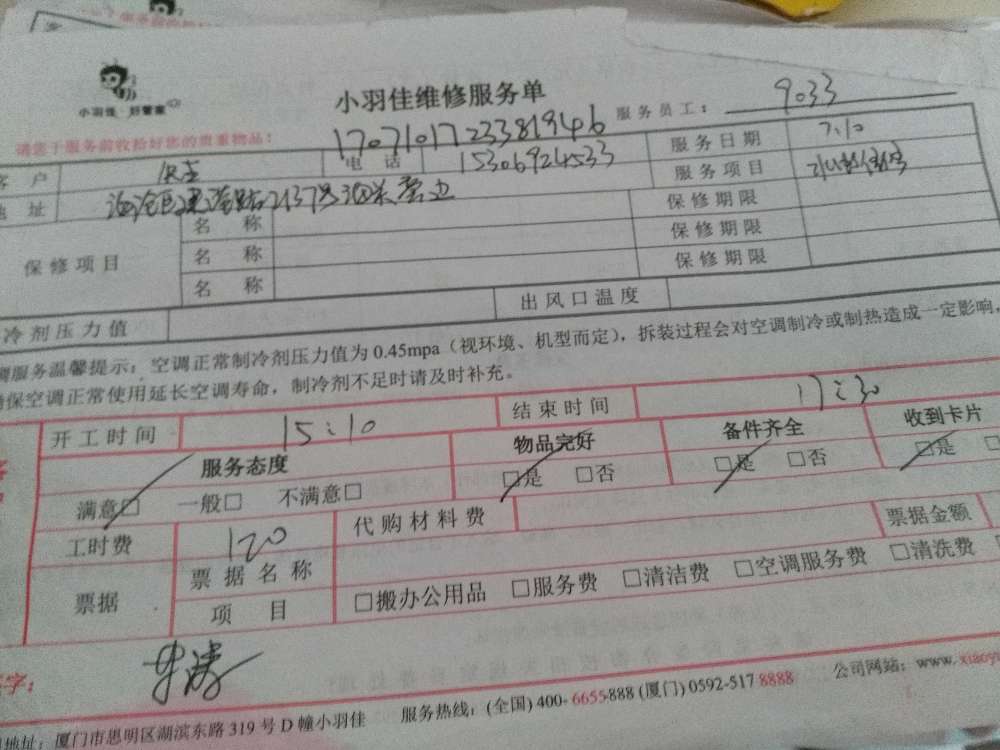 小羽佳 好管家
小羽佳维修服务单
服务员工： 9033
请您于服务前收拾好您的贵重物品：
17071017233819946
客 户 电 话 15306924533 服务日期 7.10
地 址 服务项目
保修项目 名 称 保修期限
名 称 保修期限
名 称 保修期限
冷剂压力值 出风口温度
调服务温馨提示：空调正常制冷剂压力值为 0.45mpa（视环境、机型而定），拆装过程会对空调制冷或制热造成一定影响，
确保空调正常使用延长空调寿命，制冷剂不足时请及时补充。
开工时间 15:10 结束时间 17:30
服务态度 物品完好 备件齐全 收到卡片
满意□ 一般□ 不满意□ □是 □否 □是 □否 □是
工时费 120 代购材料费
票据 票据名称 票据金额
项 目 □搬办公用品 □服务费 □清洁费 □空调服务费 □清洗费
签字：
地址：厦门市思明区湖滨东路 319 号 D 幢小羽佳 服务热线：(全国) 400-6655-888 (厦门) 0592-517 8888 公司网站：www.xiaoyu